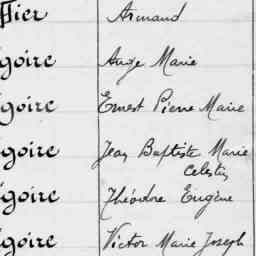 ffier Armand
goire Ange Marie
goire Ernest Pierre Marie
goire Jean Baptiste Marie
Celestin
goire Théodore Eugène
goire Victor Marie Joseph